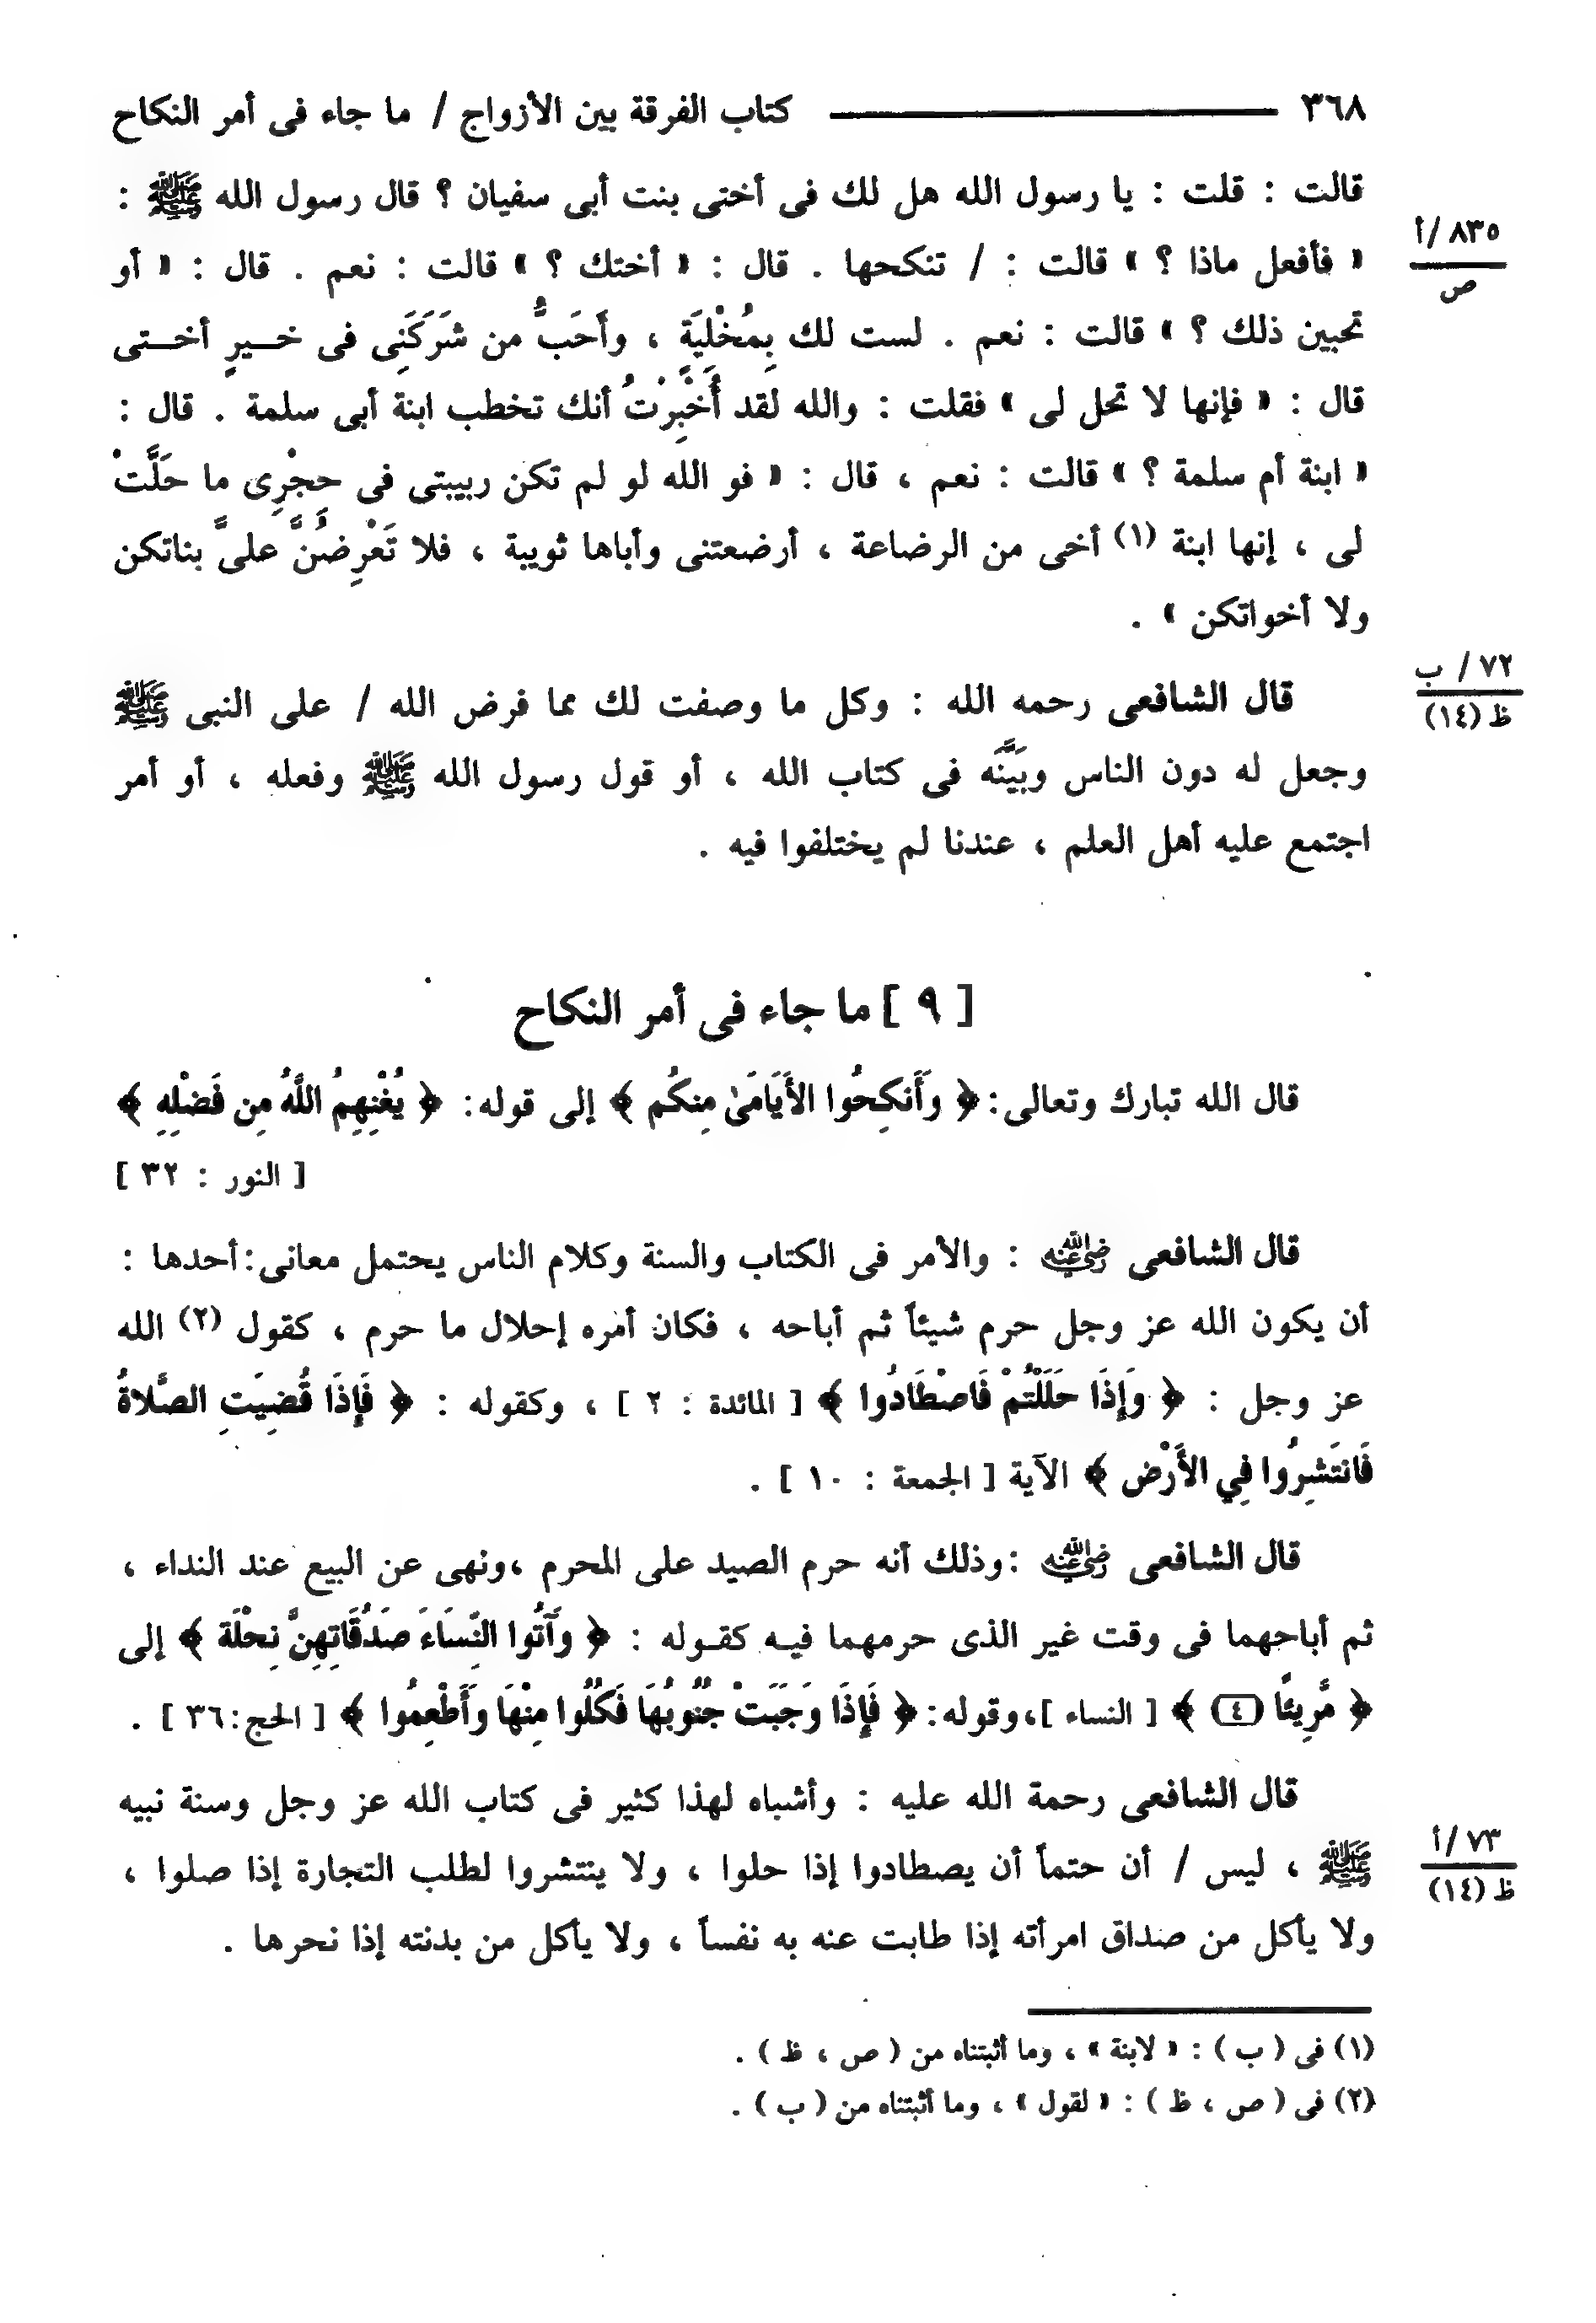 ٣٦٨ كتاب الفرقة بين الأزواج / ما جاء فى أمر النكاح
قالت : قلت : يا رسول الله هل لك فى أختى بنت أبى سفيان ؟ قال رسول الله ﷺ :
« فأفعل ماذا ؟ » قالت : / تنكحها . قال : « أختك ؟ » قالت : نعم . قال : « أو
٨٣٥ /أ
ص
تحبين ذلك ؟ » قالت : نعم . لست لك بِمُخْلِيَةٍ ، وأَحَبُّ من شَرَكَنِى فى خـــيرٍ أخـــتى
قال : « فإنها لا تحل لى » فقلت : والله لقد أُخْبِرْتُ أنك تخطب ابنة أبى سلمة . قال :
« ابنة أم سلمة ؟ » قالت : نعم ، قال : « فو الله لو لم تكن ربيبتى فى حِجْرِى ما حَلَّتْ
لى ، إنها ابنة (١) أخى من الرضاعة ، أرضعتنى وأباها ثويبة ، فلا تَعْرِضُنَّ علىَّ بناتكن
ولا أخواتكن » .
قال الشافعى رحمه الله : وكل ما وصفت لك مما فرض الله / على النبى ﷺ
٧٢ / ب
ظ (١٤)
وجعل له دون الناس وبَيَّنَه فى كتاب الله ، أو قول رسول الله ﷺ وفعله ، أو أمر
اجتمع عليه أهل العلم ، عندنا لم يختلفوا فيه .
[ ٩ ] ما جاء فى أمر النكاح
قال الله تبارك وتعالى: ﴿ وَأَنكِحُوا الأَيَامَىٰ مِنكُم ﴾ إلى قوله: ﴿ يُغْنِهِمُ اللَّهُ مِن فَضْلِهِ ﴾
[ النور : ٣٢ ]
قال الشافعى رضي الله عنه : والأمر فى الكتاب والسنة وكلام الناس يحتمل معانى: أحدها :
أن يكون الله عز وجل حرم شيئاً ثم أباحه ، فكان أمره إحلال ما حرم ، كقول (٢) الله
عز وجل : ﴿ وَإِذَا حَلَلْتُمْ فَاصْطَادُوا ﴾ [ المائدة : ٢ ] ، وكقوله : ﴿ فَإِذَا قُضِيَتِ الصَّلاةُ
فَانتَشِرُوا فِي الأَرْضِ ﴾ الآية [ الجمعة : ١٠ ] .
قال الشافعى رضي الله عنه :وذلك أنه حرم الصيد على المحرم ،ونهى عن البيع عند النداء ،
ثم أباحهما فى وقت غير الذى حرمهما فيـه كقـوله : ﴿ وَآتُوا النِّسَاءَ صَدُقَاتِهِنَّ نِحْلَة ﴾ إلى
﴿ مَّرِيئًا (٤) ﴾ [ النساء ]،وقوله: ﴿ فَإِذَا وَجَبَتْ جُنُوبُهَا فَكُلُوا مِنْهَا وَأَطْعِمُوا ﴾ [ الحج:٣٦ ] .
قال الشافعى رحمة الله عليه : وأشباه لهذا كثير فى كتاب الله عز وجل وسنة نبيه
ﷺ ، ليس / أن حتماً أن يصطادوا إذا حلوا ، ولا ينتشروا لطلب التجارة إذا صلوا ،
٧٣ /أ
ظ (١٤)
ولا يأكل من صداق امرأته إذا طابت عنه به نفساً ، ولا يأكل من بدنته إذا نحرها .
(١) فى ( ب ) : « لابنة » ، وما أثبتناه من ( ص ، ظ ) .
(٢) فى ( ص ، ظ ) : « لقول » ، وما أثبتناه من ( ب ) .